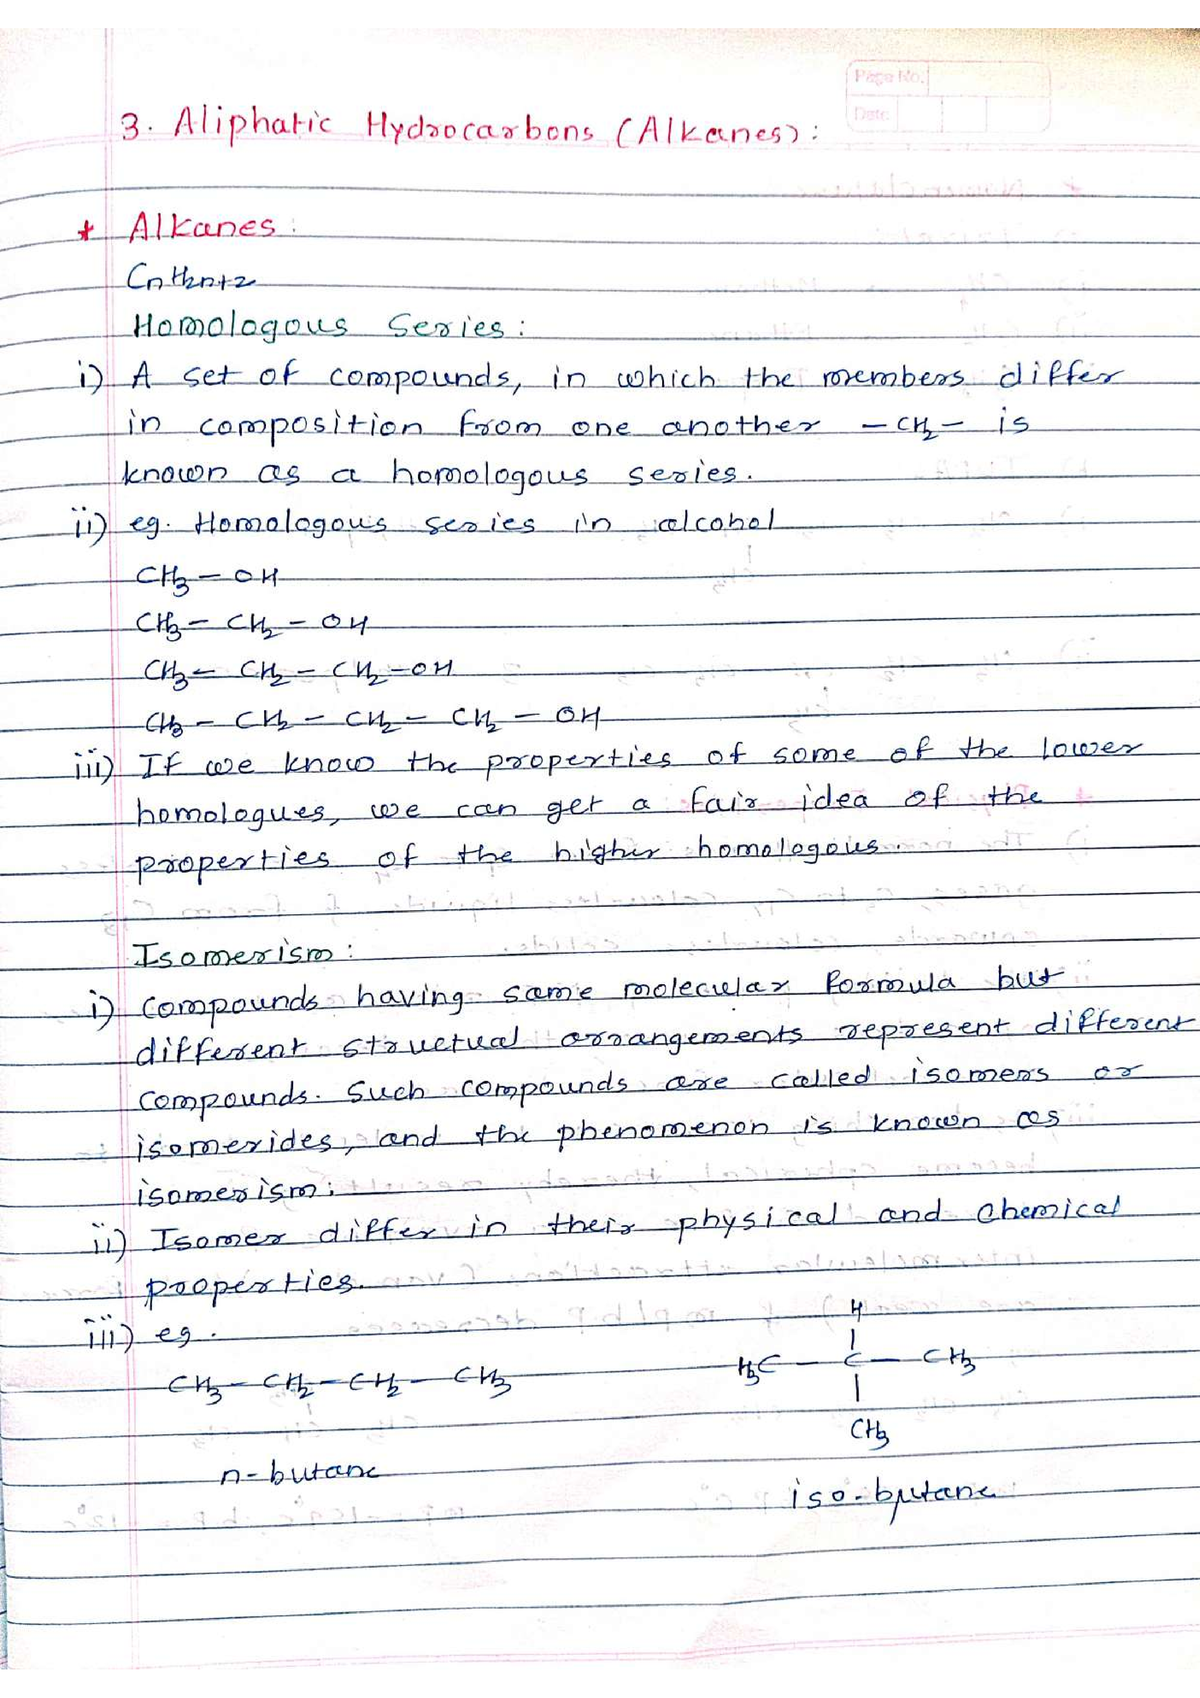 Page No.
Date
3. Aliphatic Hydrocarbons (Alkanes):
* Alkanes:
CnH2n+2
Homologous Series:
i) A set of compounds, in which the members differ
in composition from one another - CH2 - is
known as a homologous series.
ii) eg. Homologous series in alcohol
CH3 - OH
CH3 - CH2 - OH
CH3 - CH2 - CH2 - OH
CH3 - CH2 - CH2 - CH2 - OH
iii) If we know the properties of some of the lower
homologues, we can get a fair idea of the
properties of the higher homologous.
Isomerism:
i) Compounds having same molecular formula but
different structual arrangements represent different
compounds. Such compounds are called isomers or
isomerides, and the phenomenon is known as
isomerism.
ii) Isomer differ in their physical and chemical
properties.
iii) eg.
H
CH3 - CH2 - CH2 - CH3 H3C - C - CH3
CH3
n-butane
iso-butane